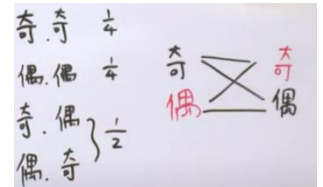 奇.奇 1/4
偶.偶 1/4
奇.偶
偶.奇
} 1/2
奇 奇
偶 偶